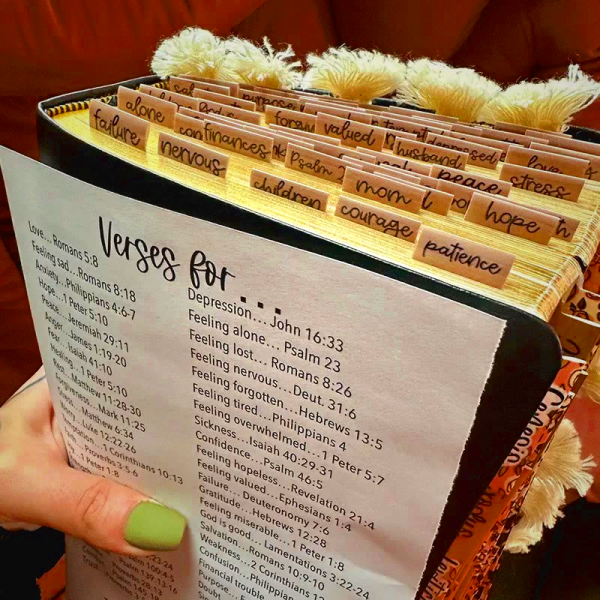 alone
valued
depressed
failure
finances
husband
love
nervous
Psalm
peace
stress
children
mom
hope
courage
patience
Verses for . . .
Love... Romans 5:8
Feeling sad...Romans 8:18
Anxiety...Philippians 4:6-7
Hope...1 Peter 5:10
Peace...Jeremiah 29:11
Anger...James 1:19-20
Fear...Isaiah 41:10
Healing...1 Peter 5:10
Rest...Matthew 11:28-30
Forgiveness...Mark 11:25
Matthew 6:34
Luke 12:22-26
1 Corinthians 10:13
Proverbs 3:5-6
1 Peter 1:8
Depression... John 16:33
Feeling alone... Psalm 23
Feeling lost... Romans 8:26
Feeling nervous...Deut. 31:6
Feeling forgotten...Hebrews 13:5
Feeling tired...Philippians 4
Feeling overwhelmed...1 Peter 5:7
Sickness...Isaiah 40:29-31
Confidence...Psalm 46:5
Feeling hopeless...Revelation 21:4
Feeling valued...Ephesians 1:4
Failure...Deuteronomy 7:6
Gratitude...Hebrews 12:28
Feeling miserable...1 Peter 1:8
God is good...Lamentations 3:22-24
Salvation...Romans 10:9-10
Weakness...2 Corinthians 12
Confusion...Philippian
Financial trouble
Purpose...
Doubt